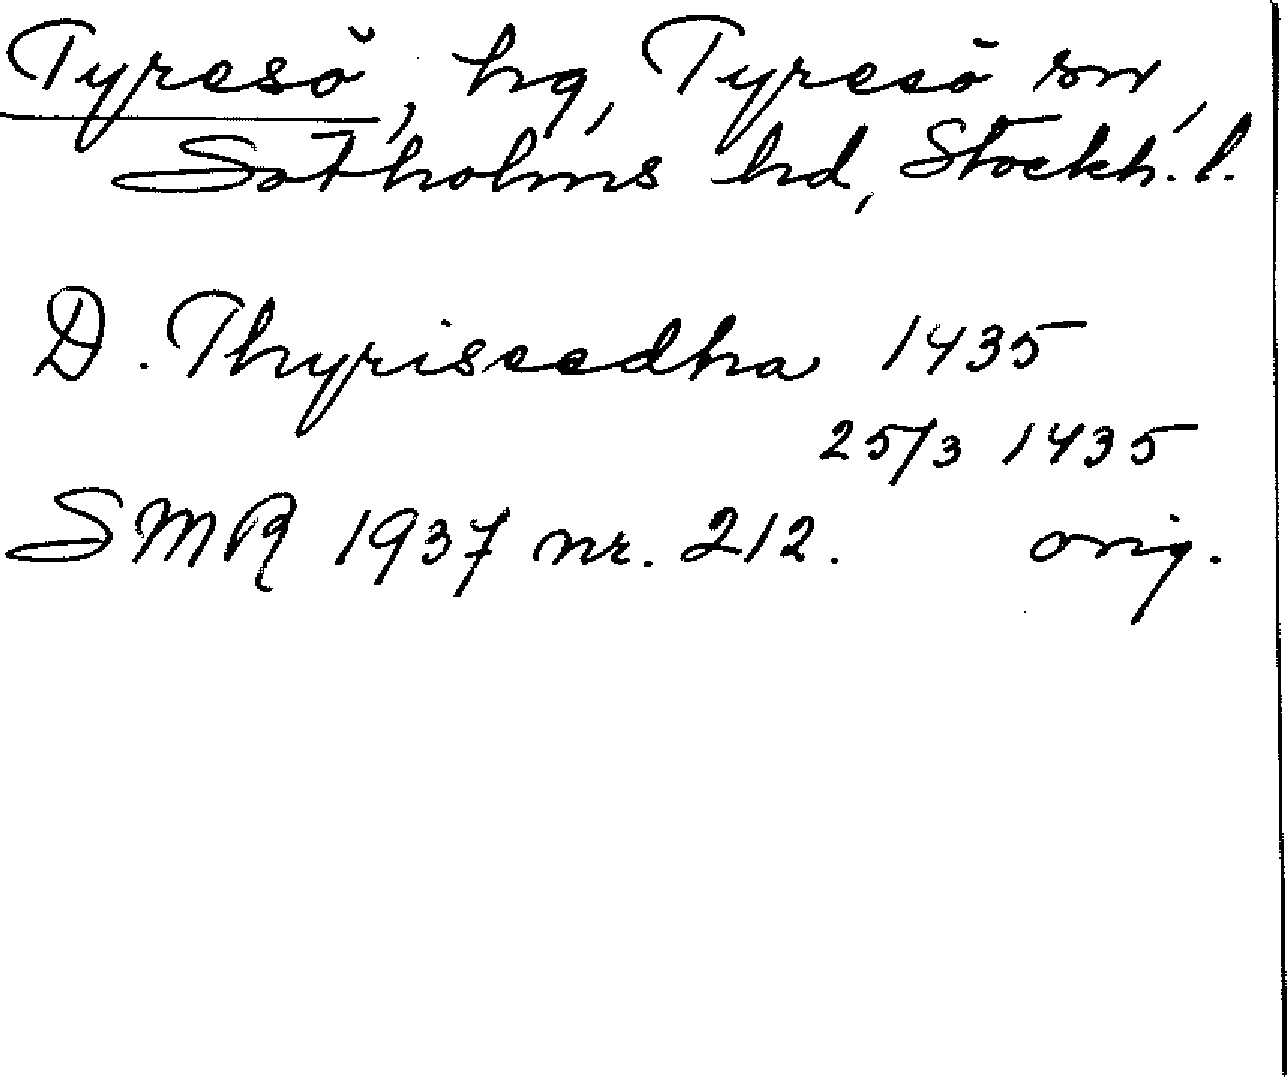 Tyresö, hg, Tyresö sn,
Sotholms hd, Stockh. l.
D. Thyriseedha 1435
25/3 1435
SMR 1937 nr. 212. orig.